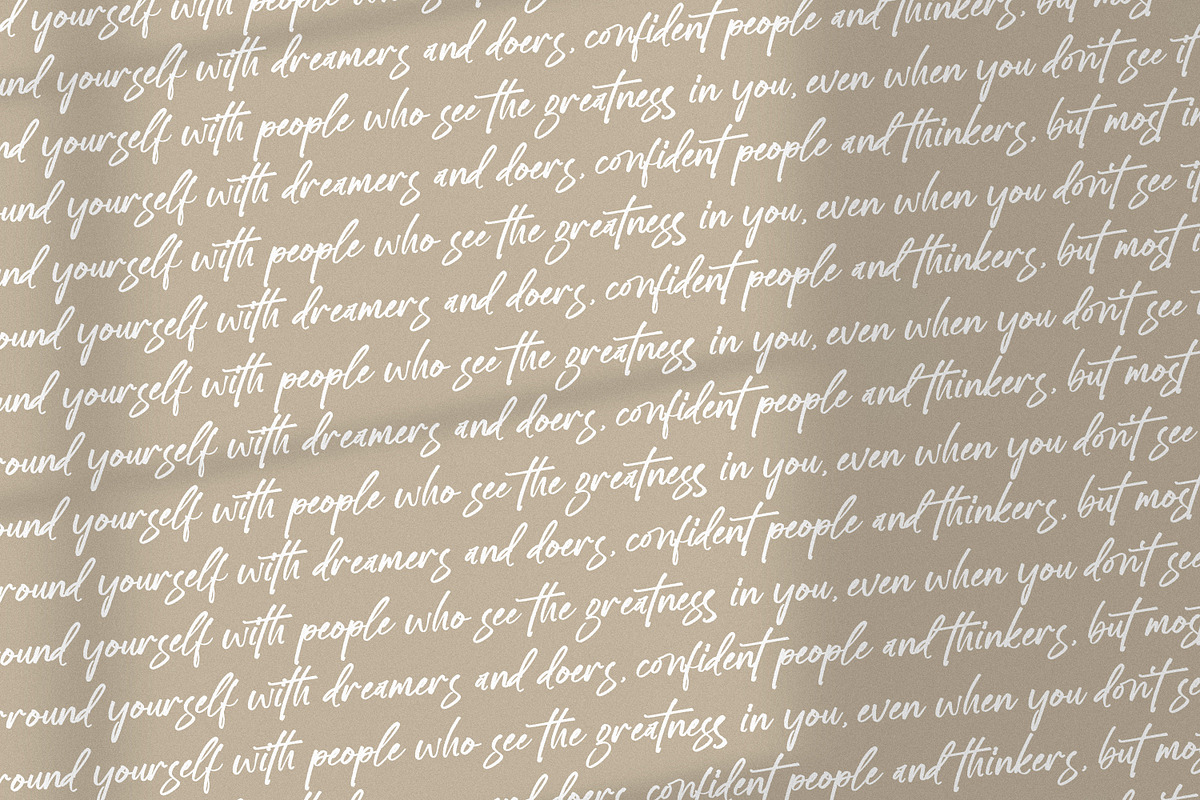 d yourself with people
und yourself with dreamers and doers, confident people and thinkers, but mos
nd yourself with people who see the greatness in you, even when you don't see it
und yourself with dreamers and doers, confident people and thinkers, but most im
nd yourself with people who see the greatness in you, even when you don't see it
ound yourself with dreamers and doers, confident people and thinkers, but most i
und yourself with people who see the greatness in you, even when you don't see i
round yourself with dreamers and doers, confident people and thinkers, but most
ound yourself with people who see the greatness in you, even when you don't see
round yourself with dreamers and doers, confident people and thinkers, but most
ound yourself with people who see the greatness in you, even when you don't see
rround yourself with dreamers and doers, confident people and thinkers, but mos
round yourself with people who see the greatness in you, even when you don't se
doers, confident people and thinkers, but mo